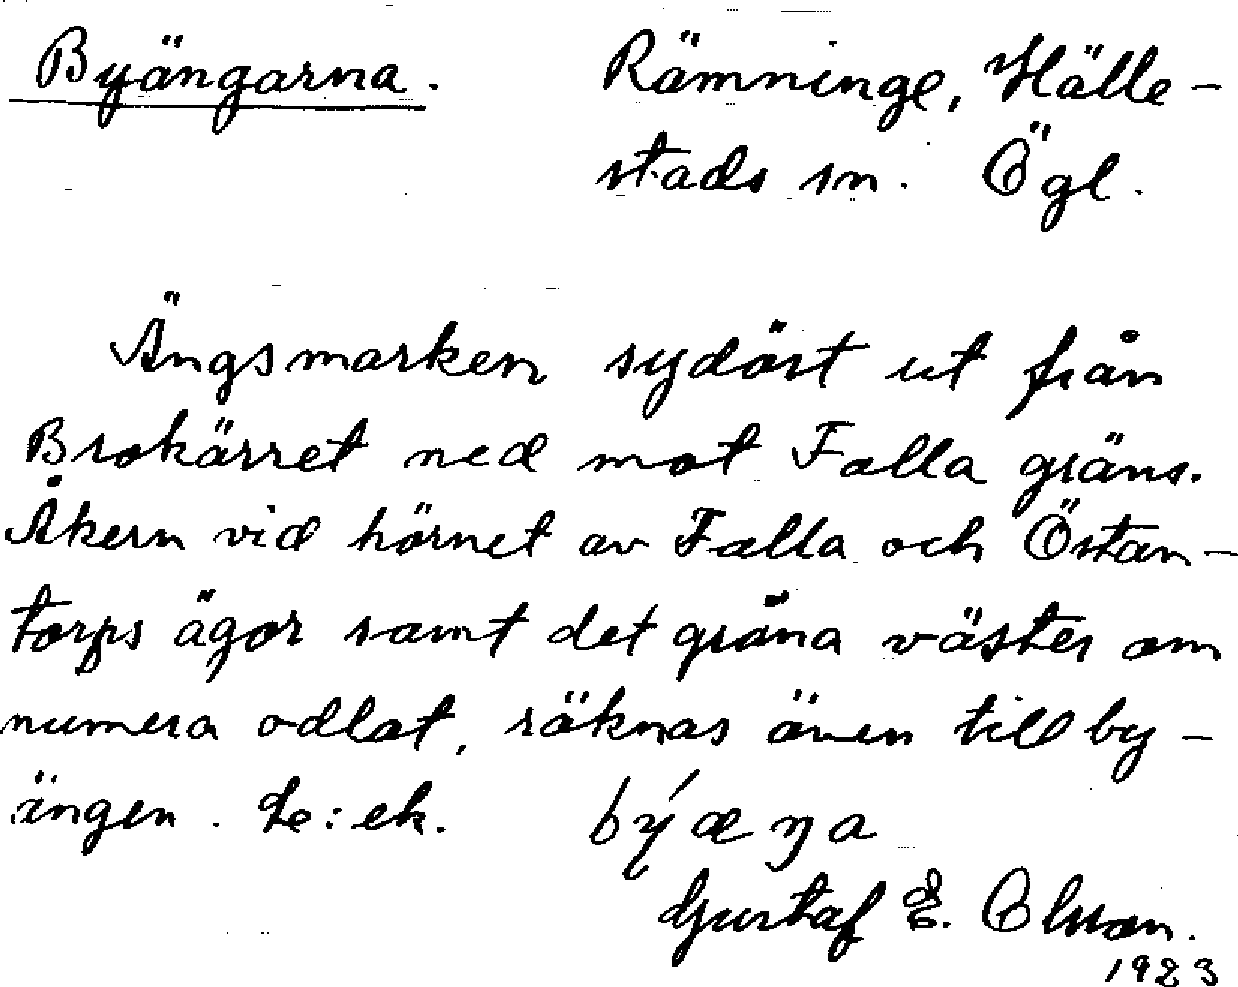 Byängarna. Rämninge, Hälle-
stads sn. Ögl.
Ängsmarken sydöst ut från
Brokärret ned mot Falla gräns.
Åkern vid hörnet av Falla och Östan-
torps ägor samt det gröna väster om
numera odlat, räknas även till by-
ängen. Le: ek. býæŋa
Gustaf E. Olsson.
1923